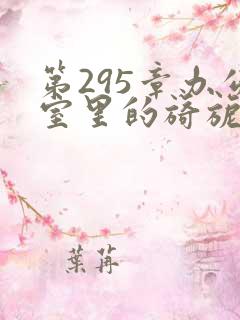 第295章办公
室里的旖旎
葉苒